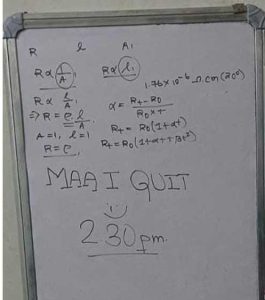 R l A₁
R∝ 1/A R∝ l₁
1.76×10⁻⁶ Ω.cm (20°)
R∝ l/A α = Rt-R0/R0×t
⇒ R = ρ l/A Rt = R0(1+αt)
A=1, l=1 Rt=R0(1+αt+βt²)
R = ρ
MAA I QUIT
2 30 pm